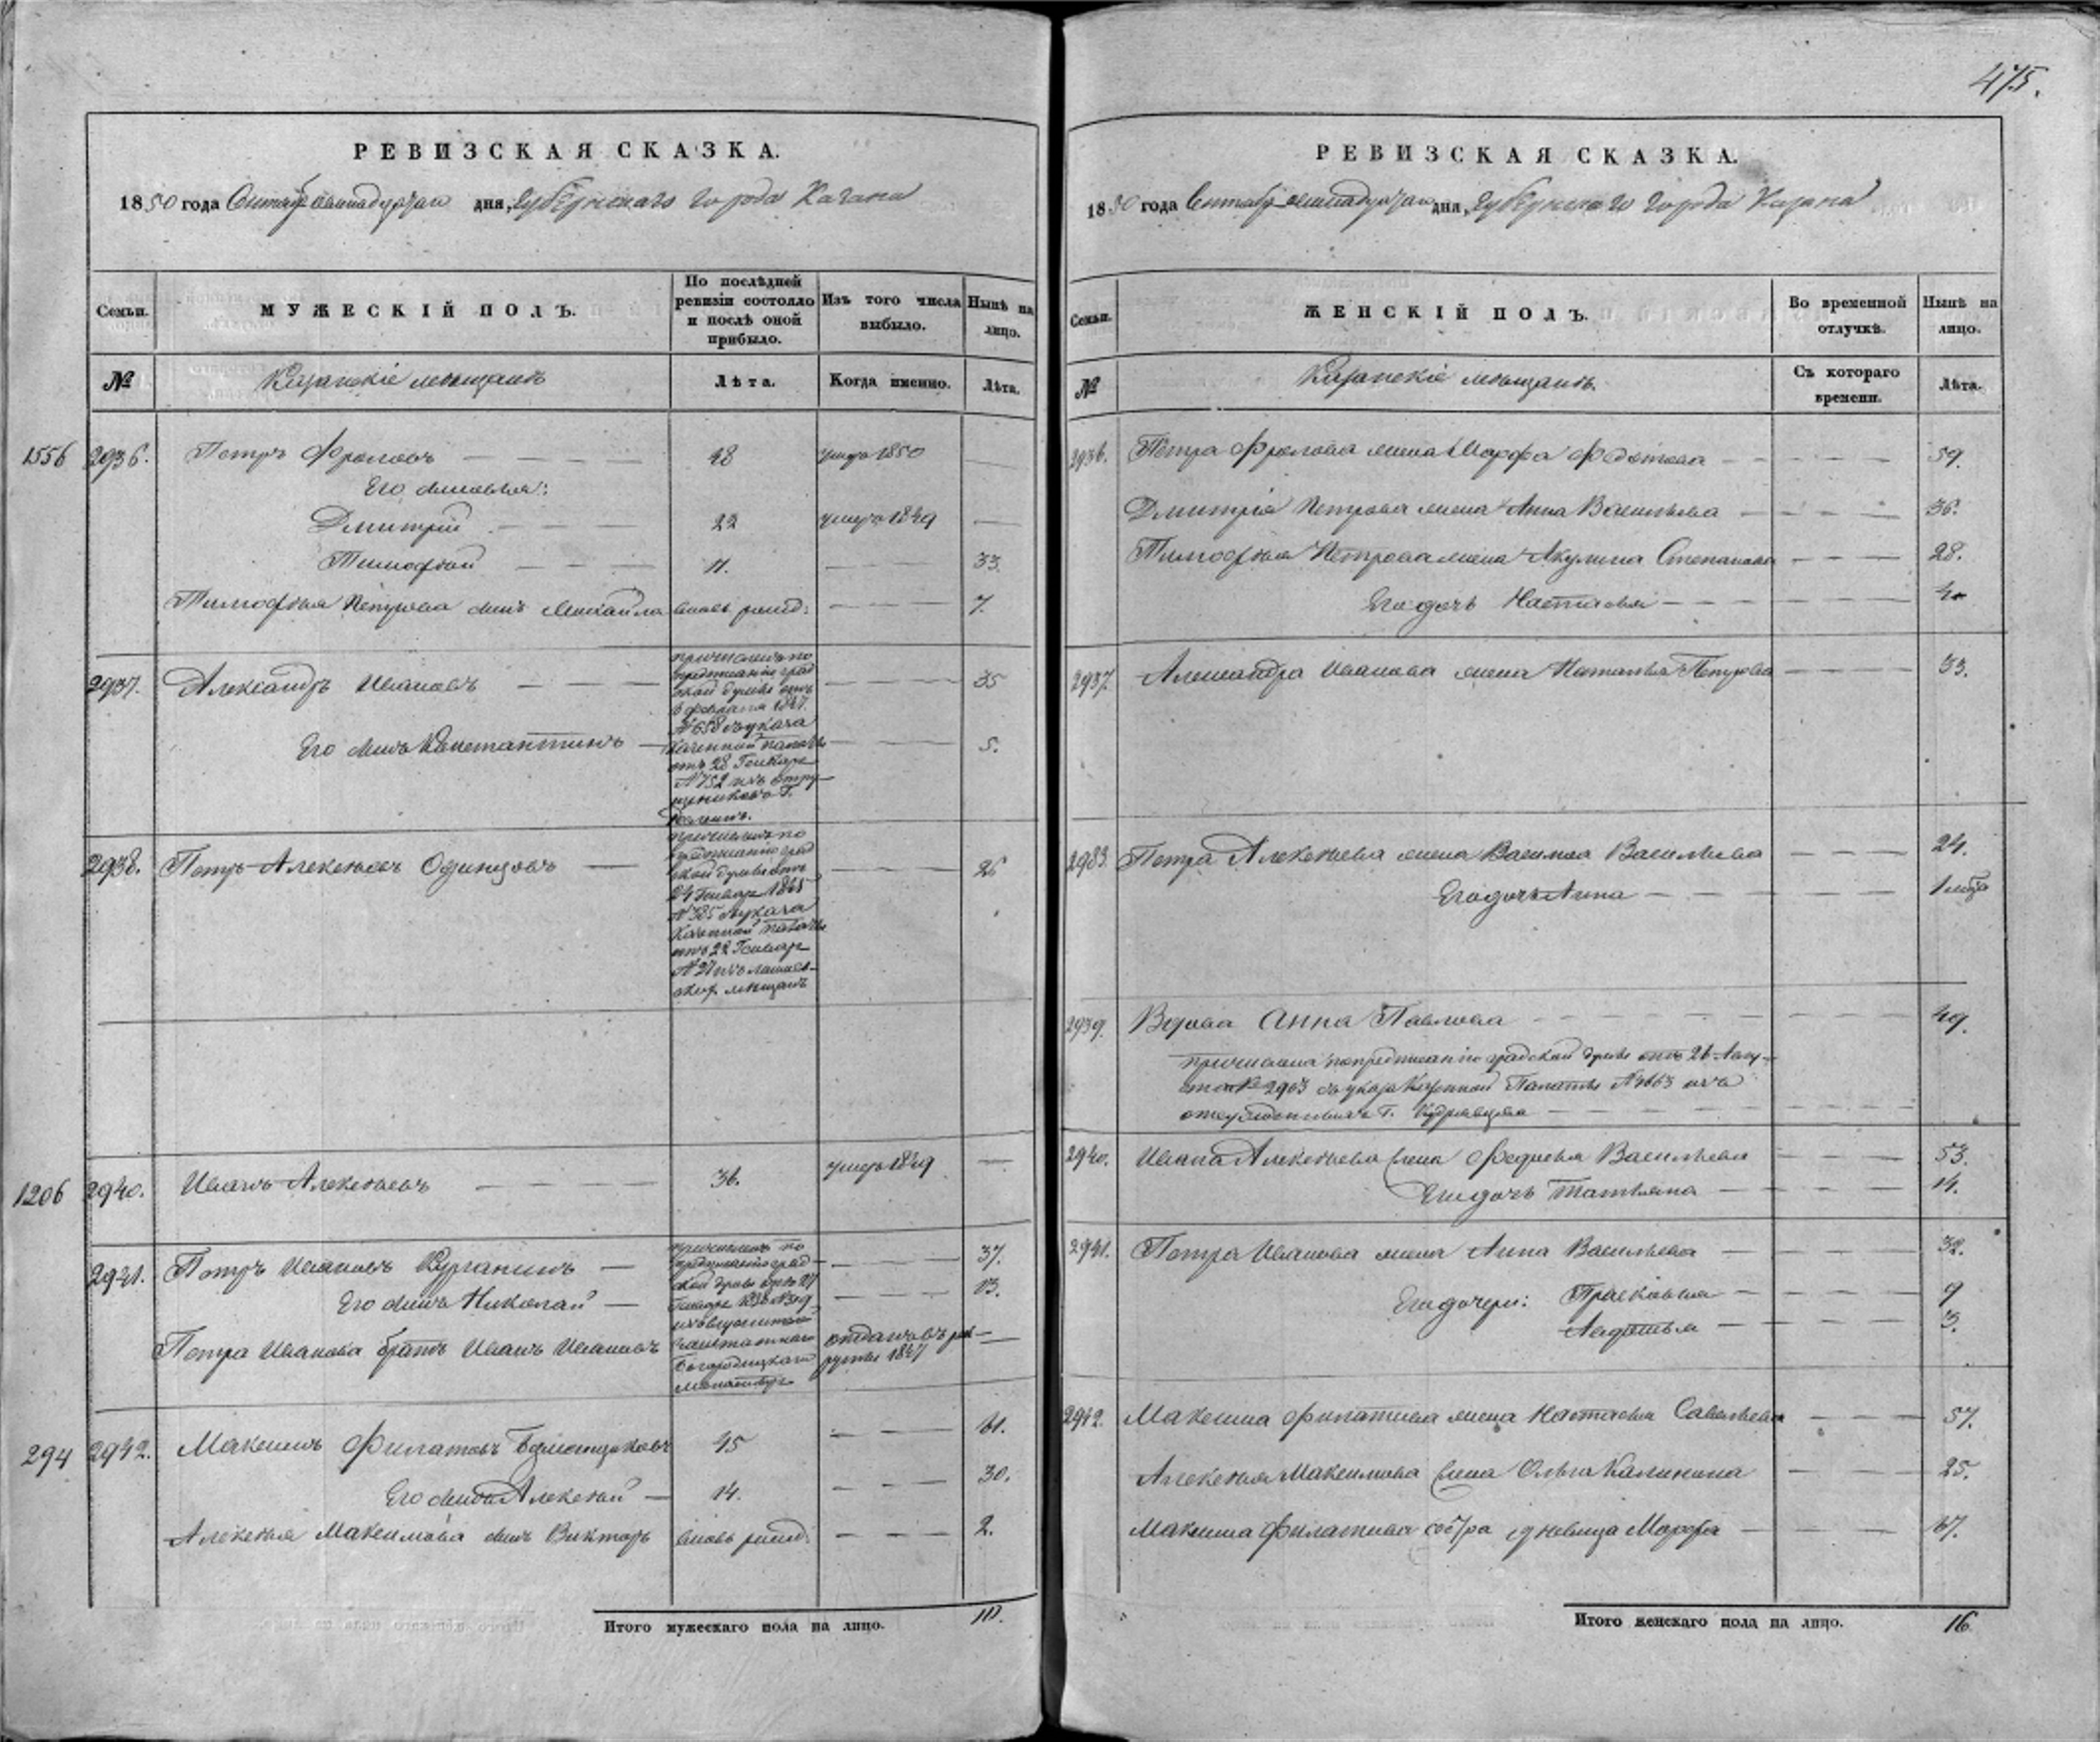 475.
РЕВИЗСКАЯ СКАЗКА.
1850 года Сентября дня, Губернскаго города Казани
Семьи.
МУЖЕСКІЙ ПОЛЪ.
По послѣдней ревизіи состояло и послѣ оной прибыло.
Изъ того числа выбыло.
Нынѣ на лицо.
№
Казанскіе мѣщане
Лѣта.
Когда именно.
Лѣта.
1556 2936. Петръ Фроловъ 48 умеръ 1850
Его сыновья:
Дмитрій 22 умеръ 1849
Тимофей 11. 33.
Тимофѣя Петрова сынъ Михайла вновь рожд: 7.
2937. Александръ Ивановъ 35
причисленъ по
предписанію град
ской думы отъ
6 февраля 1847.
№ 658 и указа
Казенной палаты
отъ 28 Генваря
№ 752 изъ
Его сынъ Константинъ 5.
2938. Петръ Алексѣевъ Одинцовъ 26
причисленъ по
предписанію град
ской думы отъ
24 Генваря
№ 385 и указа
Казенной палаты
отъ 22 Генваря
№ 27 изъ
мѣщанъ
1206 2940. Иванъ Алексѣевъ 36. умеръ 1849
2941. Петръ Ивановъ Курганинъ 37.
причисленъ по
предписанію град
ской думы отъ 27
Его сынъ Николай 13.
Петра Иванова братъ Иванъ Ивановъ отданъ въ рек
руты 1847
Богородицкаго
монастыря
294 2942. Максимъ Филатовъ 45 61.
Его сынъ Алексѣй 14. 30.
Алексѣя Максимова сынъ Викторъ вновь рожд: 2.
Итого мужескаго пола на лицо. 10.
РЕВИЗСКАЯ СКАЗКА.
1850 года Сентября дня, Губернскаго города Казани
Семьи.
ЖЕНСКІЙ ПОЛЪ.
Во временной отлучкѣ.
Нынѣ на лицо.
№
Казанскіе мѣщане.
Съ котораго времени.
Лѣта.
2936. Петра Фролова жена Марфа Федотова 59.
Дмитрія Петрова жена Анна Васильева 36.
Тимофѣя Петрова жена Акулина Степанова 28.
Его дочь Настасья
2937. Александра Иванова жена Наталья Петрова 33.
2983. Петра Алексѣева жена Василиса Васильева 24.
Его дочь Анна 1 мѣца
2939. Вдова Анна Павлова 49.
причислена по предписанію градской думы отъ 26 Авгу-
ста № 2903 и указа Казенной Палаты № 3663 изъ
Г. Кудрявцева
2940. Ивана Алексѣева жена Федосья Васильева 53.
Его дочь Татьяна 14.
2941. Петра Иванова жена Анна Васильева 32.
Его дочери: Прасковья 9
Авдотья 3.
2942. Максима Филатова жена Настасья Савельева 57.
Алексѣя Максимова жена Ольга Калинина 25.
Максима Филатова сестра дѣвица Марфа 67.
Итого женскаго пола на лицо. 16